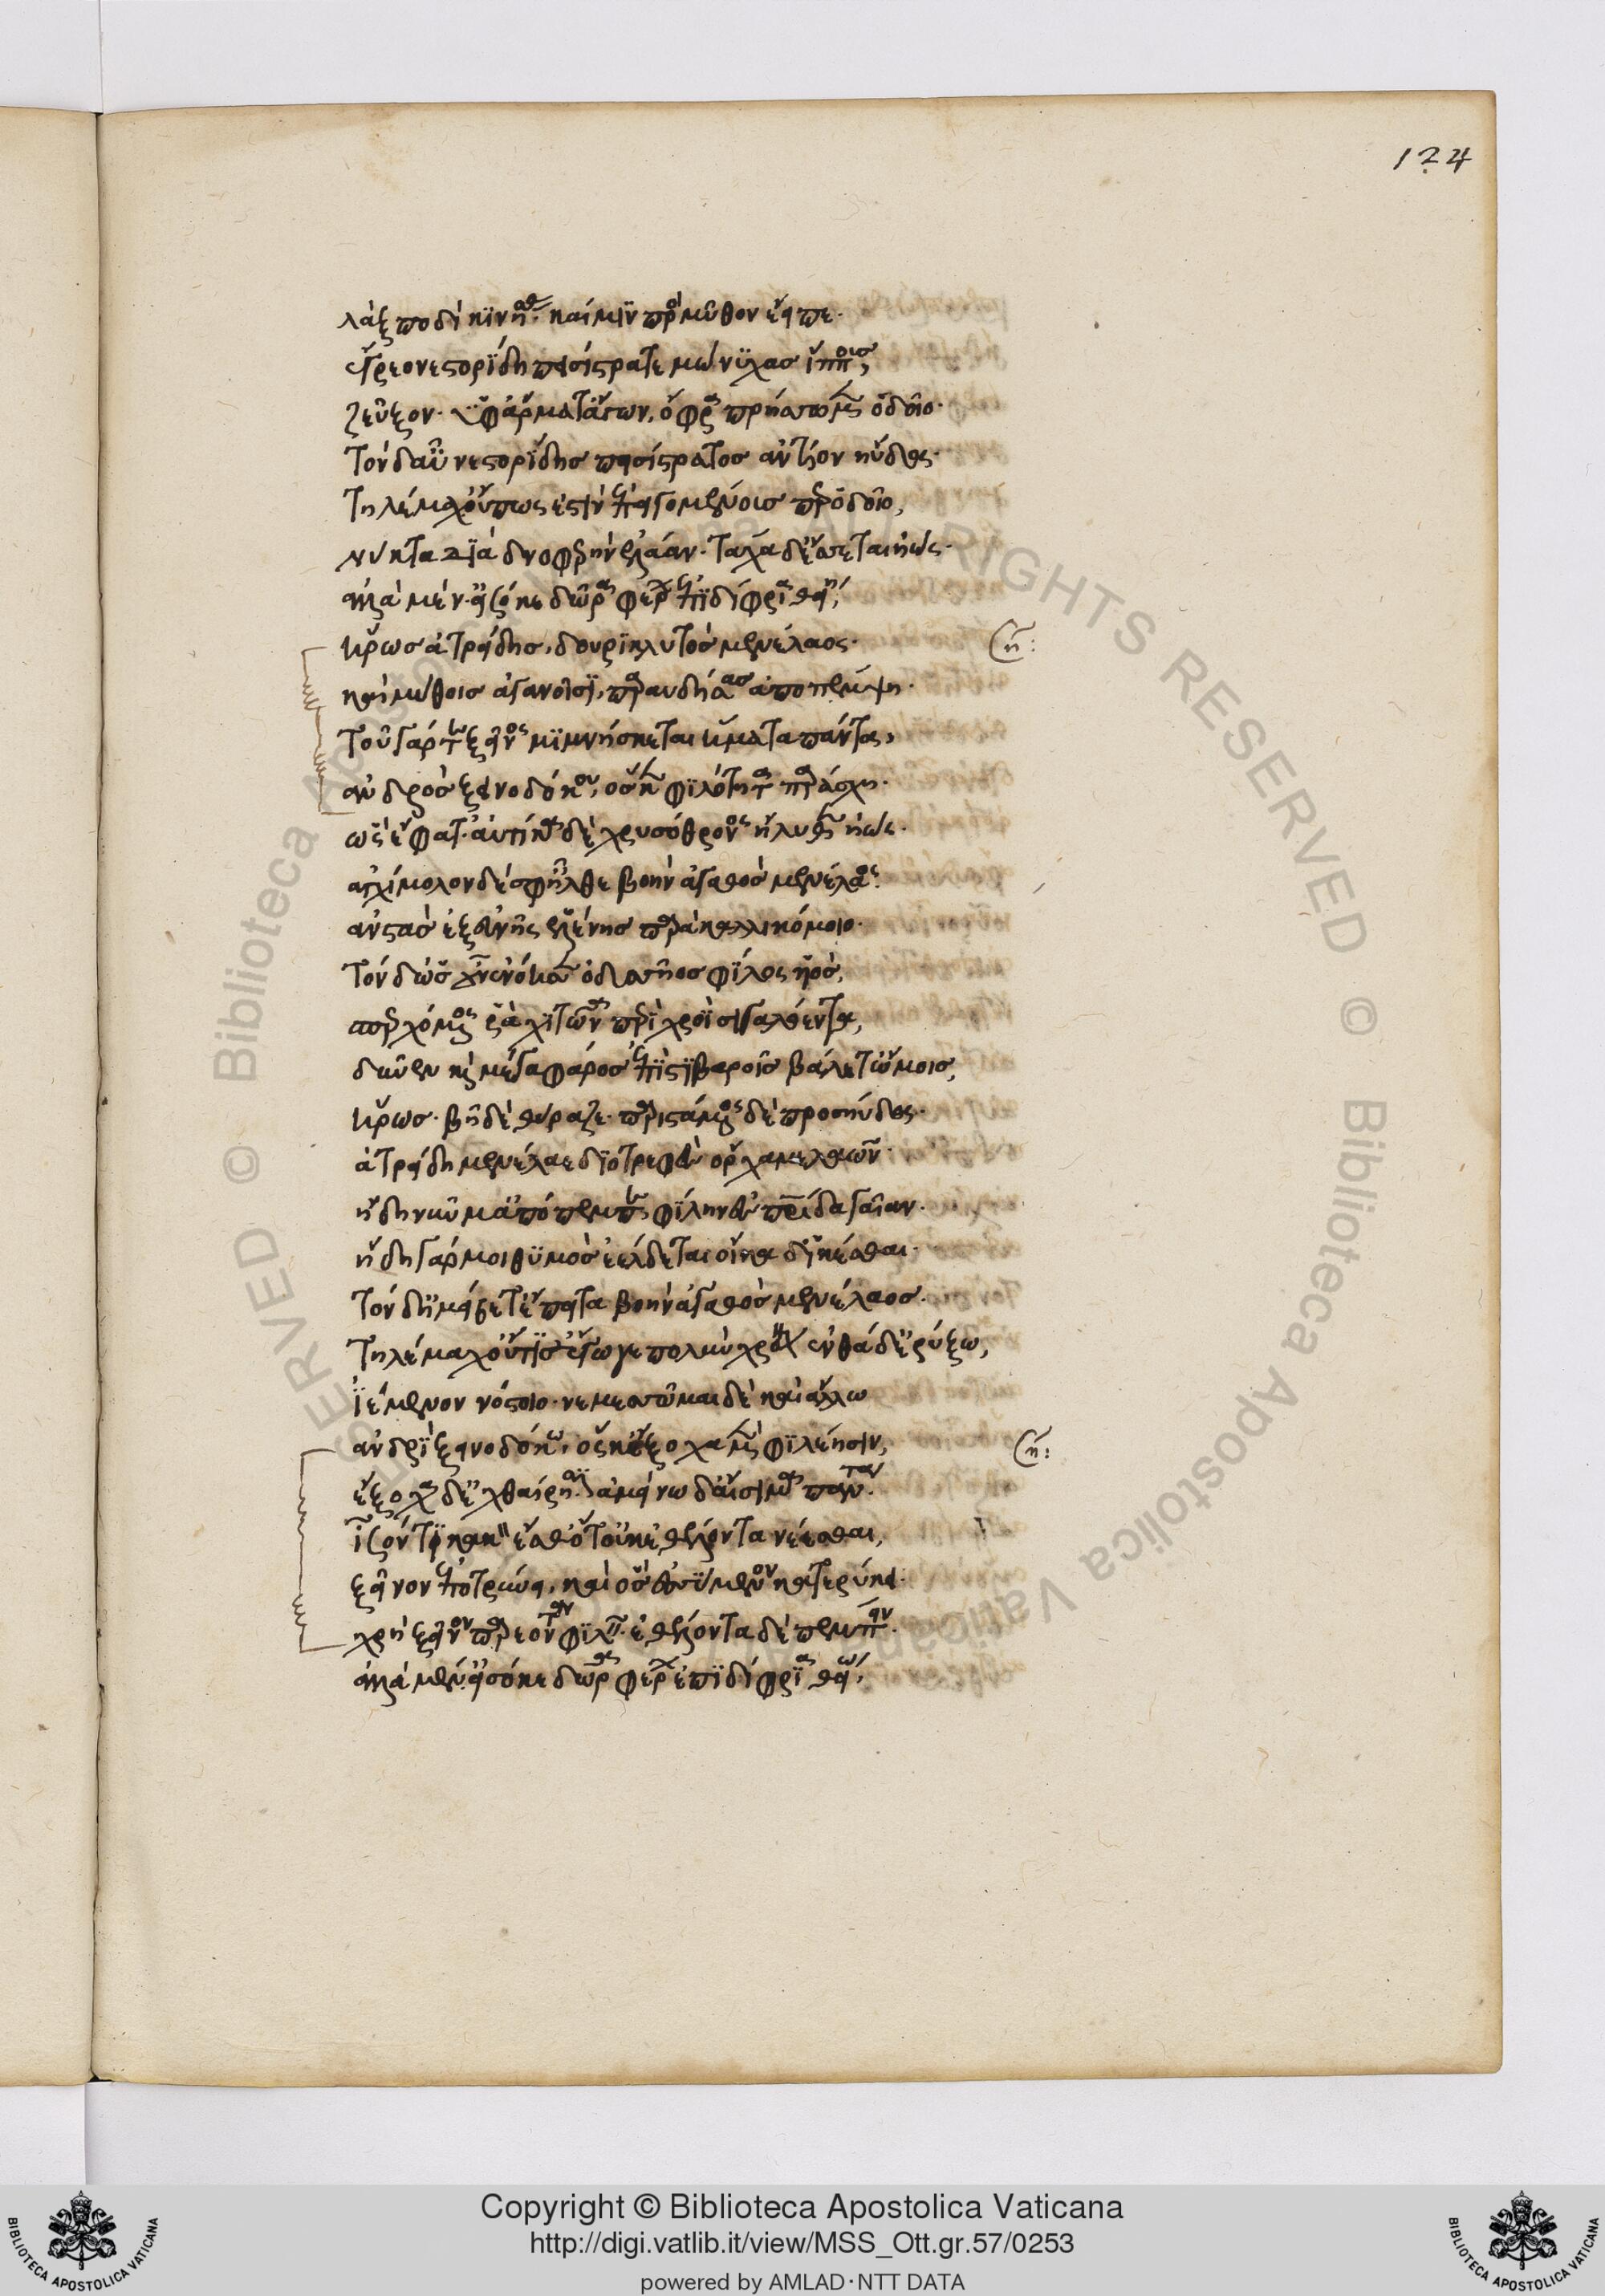 124
λὰξ ποδὶ κϊνήσας· καί μϊν πρὸς μῦθον ἔειπε·
ἔγρεο νεστορίδη πεισίστρατε μώνϋχας ἵππους,
ζεῦξον· ὑφ' ἅρματ' ἄγων, ὄφρα πρήσσωμεν ὁδοῖο·
Τὸν δ' αὖ νεστορίδης πεισίστρατος ἀντίον ηὔδα·
Τηλέμαχ' οὔπως ἐστὶν ἐπειγομένους περ ὁδοῖο,
νύκτα διὰ δνοφερὴν ἐλάαν· τάχα δ' ἔσσεται ἠώς·
ἀλλὰ μέν· εἰσόκε δῶρα φέρων ἐπϊδίφρϊα θείη,
ἥρως ἀτρείδης, δουρϊκλυτὸς μενέλαος·
(ση):
καὶ μύθοις ἀγανοῖσϊ, παραυδήσας ἀποπέμψη·
Τοῦ γάρ τε ξεῖνος μϊμνήσκεται ἤματα πάντα,
ἀνδρὸς ξεινοδόκου, ὅς κεν φϊλότητα παράσχη·
ὣς ἔφατ' αὐτίκα δὲ χρυσόθρονος ἤλυθεν ἠώς·
ἀγχίμολον δέ σφ' ἦλθε βοὴν ἀγαθὸς μενέλαος·
ἀνστὰς ἐξ εὐνῆς ἑλένης πάρα καλλικόμοιο·
Τὸν δ' ὡς οὖν ἐνόησεν ὀδυσσῆος φίλος υἱὸς,
σπερχόμενος ῥὰ χϊτῶνα περὶ χροῒ σιγαλόεντα,
δῦνεν καὶ μέγα φάρος ἐπὶ στϊβαροῖς βάλετ' ὤμοις,
ἥρως· βῆ δὲ θύραζε· παριστάμενος δὲ προσηύδα·
ἀτρείδη μενέλαε δϊοτρεφὲς ὄρχαμε λαῶν·
ἤδη νῦν μ' ἀπόπεμπε φίλην ἐς πατρίδα γαῖαν·
ἤδη γάρ μοι θϋμὸς ἐέλδεται οἴκαδ' ἱκέσθαι·
Τὸν δ' ἠμείβετ' ἔπειτα βοὴν ἀγαθὸς μενέλαος·
Τηλέμαχ' οὔτϊ σ' ἔγωγε πολὺν χρόνον ἐνθάδ' ἐρύξω,
ἱέμενον νόστοιο· νεμεσσῶμαι δὲ καὶ ἄλλω
ἀνδρὶ ξεινοδόκω, ὅς κ' ἔξοχα μὲν φϊλέησιν,
(ση):
ἔξοχα δ' ἐχθαίρησιν· ἀμείνω δ' αἴσιμα πάντα·
ἶσόν τοι κακὸν ἔσθ' ὅς τ' οὐκ ἐθέλοντα νέεσθαι,
ξεῖνον ἐποτρύνει, καὶ ὃς ἐσσϋμενον κατερύκει·
χρὴ ξεῖνον παρεόντα φϊλεῖν· ἐθέλοντα δὲ πέμπειν·
ἀλλὰ μέν· εἰσόκε δῶρα φέρων ἐπϊδίφρϊα θείω,
Copyright © Biblioteca Apostolica Vaticana
http://digi.vatlib.it/view/MSS_Ott.gr.57/0253
powered by AMLAD·NTT DATA